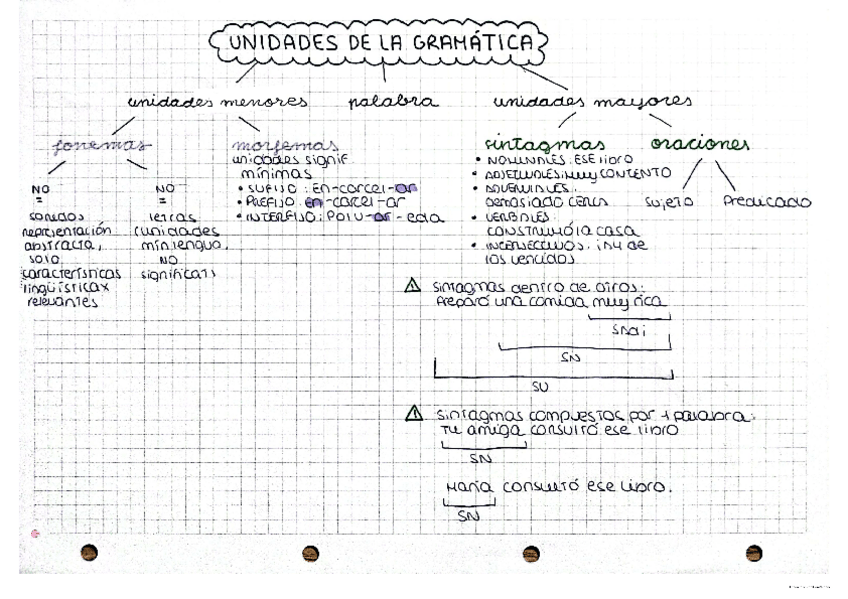 UNIDADES DE LA GRAMÁTICA
unidades menores palabra unidades mayores
fonemas morfemas sintagmas oraciones
NO
=
sonidos
representación
abstracta,
solo
características
lingüísticax
relevantes
NO
=
letras
(unidades
min lengua.
NO
significat)
unidades signif
mínimas
• SUFIJO: En-carcel-ar
• PREFIJO: en-carcel-ar
• INTERFIJO: Polv-ar-eda
• NOMINALES: ESE libro
• ADJETIVALES: muy CONTENTO
• ADVERBIALES:
demasiado cerca
• VERBALES:
construyó la casa
• INTERJECTIVOS: ¡Ay de
los vencidos
sujeto Predicado
⚠ Sintagmas dentro de otros:
Preparó una comida muy rica
SAdj
SN
SV
⚠ Sintagmas compuestos por 1 palabra:
Tu amiga consultó ese libro
SN
María consultó ese libro.
SN